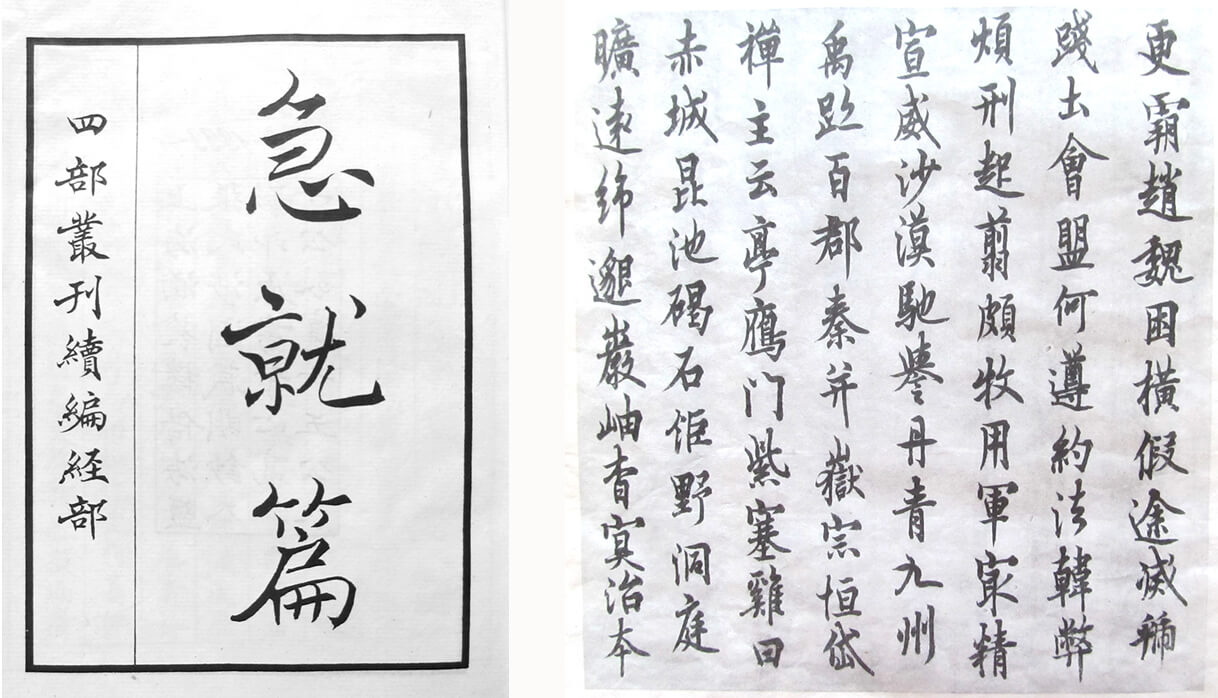 急就篇
四部叢刊續編経部
更霸趙魏困橫假途滅虢
踐土會盟何遵約法韓弊
煩刑起翦頗牧用軍最精
宣威沙漠馳譽丹青九州
禹跡百郡秦并嶽宗恒岱
禪主云亭鴈门紫塞雞田
赤城昆池碣石鉅野洞庭
曠遠綿邈巖岫杳冥治本